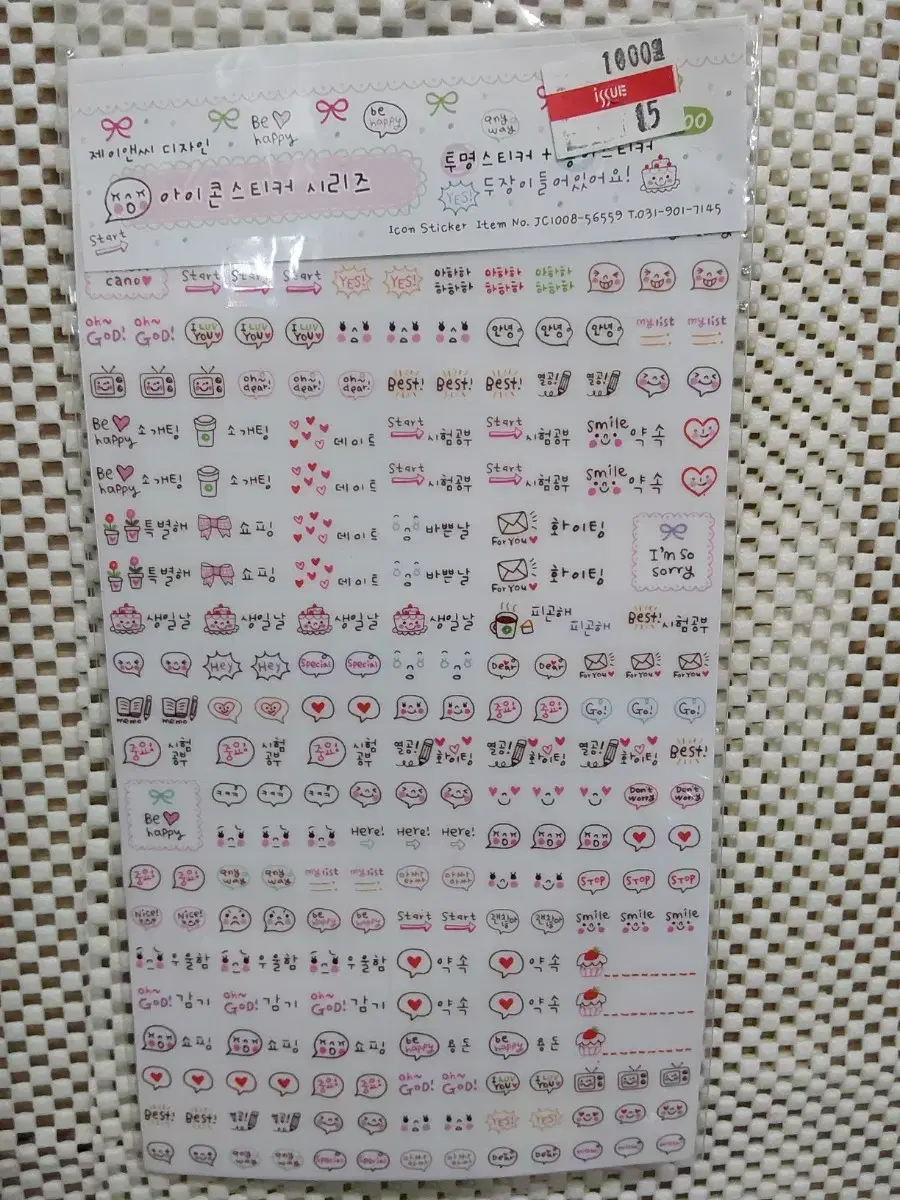 1000원
ISSUE
15
Be happy
be happy
any way
00
제이앤씨 디자인
투명스티커 +
아이콘스티커 시리즈
YES!
두장이들어있어요!
Start
Icon Sticker Item No. JC1008-56559 T.031-901-7145
cano Start Start Start YES! YES! 아하하하하하 아하하하하하 아하하하하하
Oh~ GOD! Oh~ GOD! I LUV YOU I LUV YOU I LUV YOU 안녕 안녕 안녕 my list my list
oh~ dear! oh~ dear! oh~ dear! Best! Best! Best! 열공! 열공!
Be happy 소개팅 소개팅 데이트 Start 시험공부 Start 시험공부 smile 약속
Be happy 소개팅 소개팅 데이트 Start 시험공부 Start 시험공부 smile 약속
특별해 쇼핑 데이트 바쁜날 For You 화이팅 I'm so sorry
특별해 쇼핑 데이트 바쁜날 For You 화이팅
생일날 생일날 생일날 생일날 피곤해 피곤해 Best! 시험공부
Hey Hey Special Special Dear Dear For You For You For You
memo memo 중요! 중요! Go! Go! Go!
중요! 시험공부 중요! 시험공부 중요! 시험공부 열공! 화이팅 열공! 화이팅 열공! 화이팅 Best!
Be happy ㅋㅋㅋ ㅋㅋㅋ ㅋㅋㅋ Don't worry Don't worry
Here! Here! Here!
중요! 중요! any way any way my list my list 아싸아싸 아싸아싸 STOP STOP STOP
Nice! Nice! be happy be happy Start Start 괜찮아 괜찮아 smile smile smile
우울함 우울함 우울함 약속 약속
Oh~ GOD! 감기 Oh~ GOD! 감기 Oh~ GOD! 감기 약속 약속
쇼핑 쇼핑 쇼핑 be happy 용돈 be happy 용돈
중요! 중요! Oh~ GOD! Oh~ GOD! I LUV YOU I LUV YOU
Best! Best! 열공! 열공! YES! YES!
any way any way Special Special 아싸아싸 아싸아싸 Dear Dear